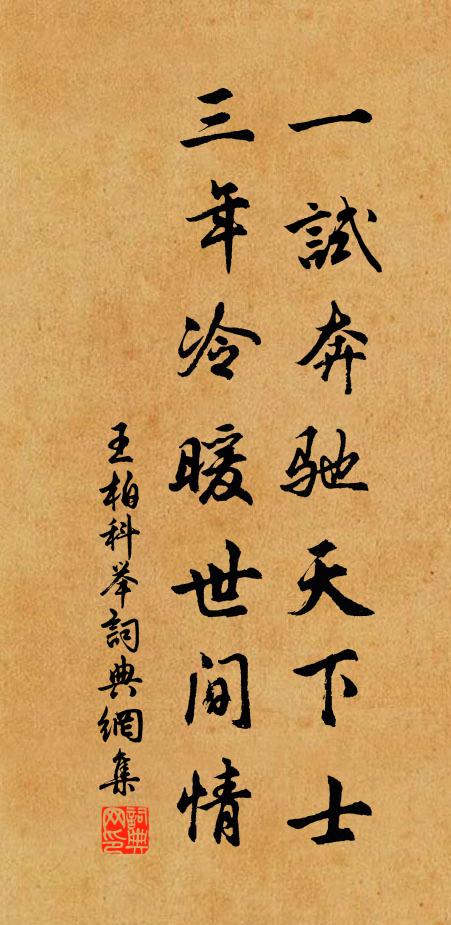 一試奔驰天下士
三年冷暖世间情
王柏科举詞典網集
詞典网印